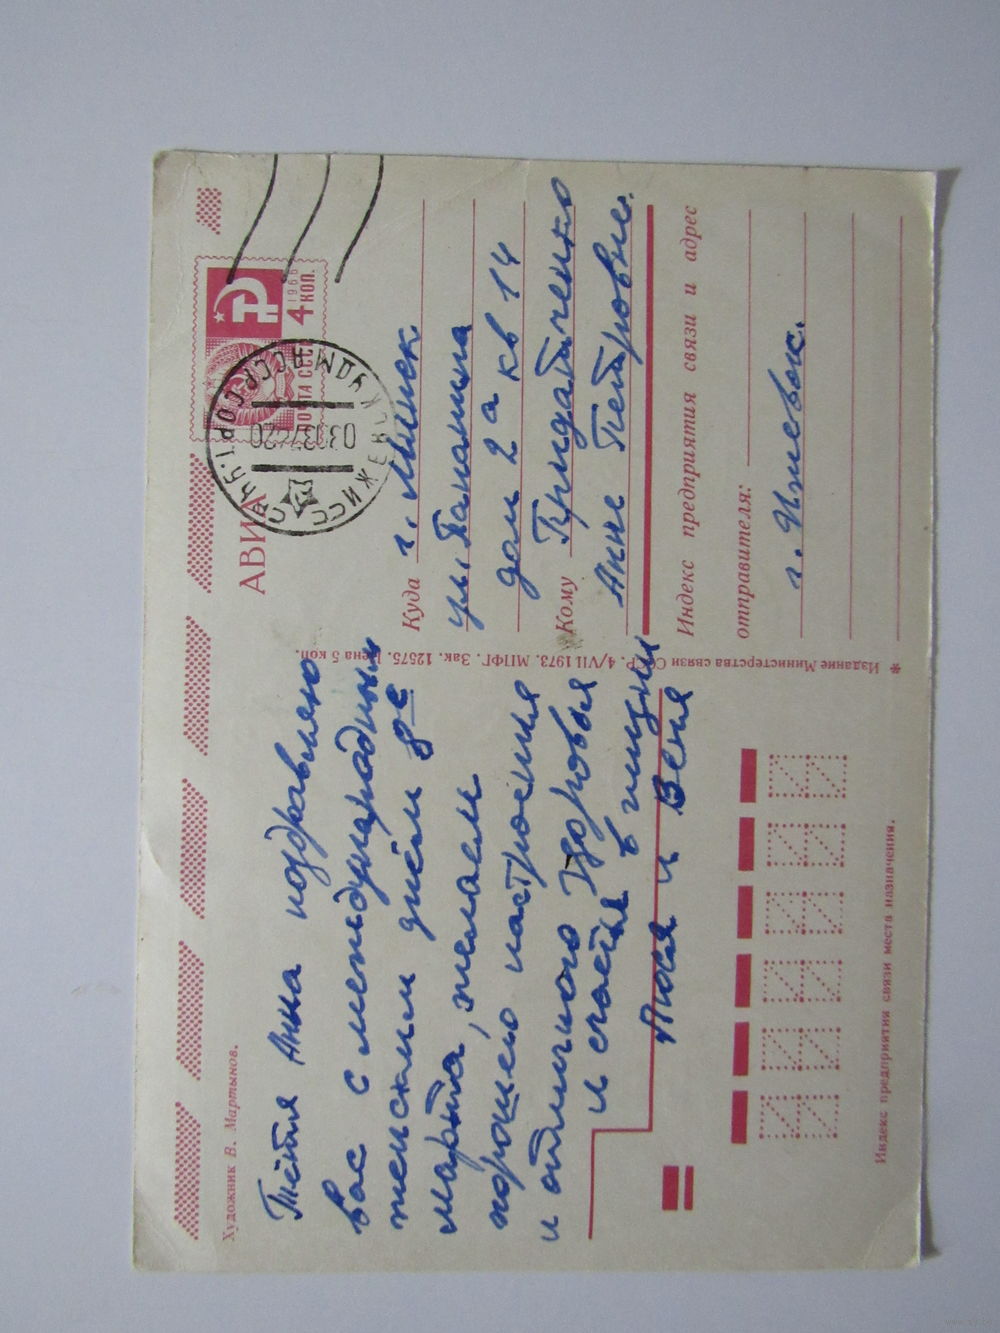 Художник В. Мартынов.
АВИА
ПОЧТА СССР
1966
4 КОП.
Тётя Анна поздравляю
вас с международным
женским днём 8е
марта, желаем
хорошего настроения
и отличного здоровья
и счастья в жизни
Люся и Веня
* Издание Министерства связи СССР. 4/VII 1973. МПФГ. Зак. 12575. Цена 5 коп.
Куда г. Минск
дом 2а кв 14
Кому Придатченко
Анне Петровне.
Индекс предприятия связи и адрес
отправителя:
г. Ижевск.
Индекс предприятия связи места назначения.